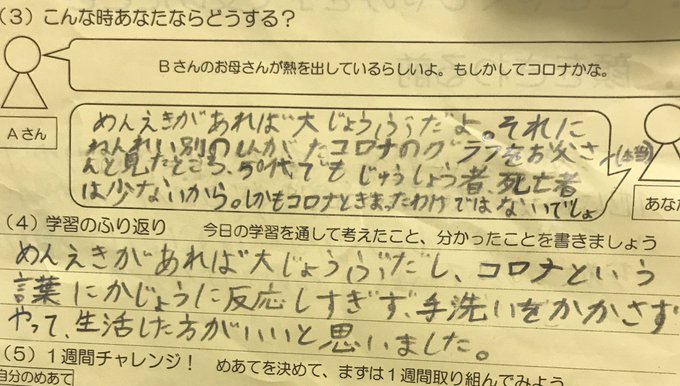 (3) こんな時あなたならどうする?
Bさんのお母さんが熱を出しているらしいよ。もしかしてコロナかな。
Aさん
めんえきがあれば大じょうぶだよ。それに
ねんれい別の コロナのグラフをお父さ(本当)
んと見たところ、50代でもじゅうしょう者、死亡者
は少ないから。しかもコロナときまったわけではないでしょ
あな
(4) 学習のふり返り 今日の学習を通して考えたこと、分かったことを書きましょう
めんえきがあれば大じょうぶだし、コロナという
言葉にかじょうに反応しすぎず、手洗いをかかさず
やって、生活した方がいいと思いました。
(5) 1週間チャレンジ! めあてを決めて、まずは1週間取り組んでみよう
自分のめあて